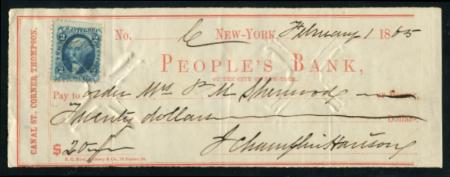 No. NEW-YORK, February 1 1865
PEOPLE'S BANK,
OF THE CITY OF NEW-YORK.
Pay to order Mrs P M Sherwood or
Twenty dollars Dollars
$ 20
J Champlin
CANAL ST, CORNER THOMPSON.
2 2